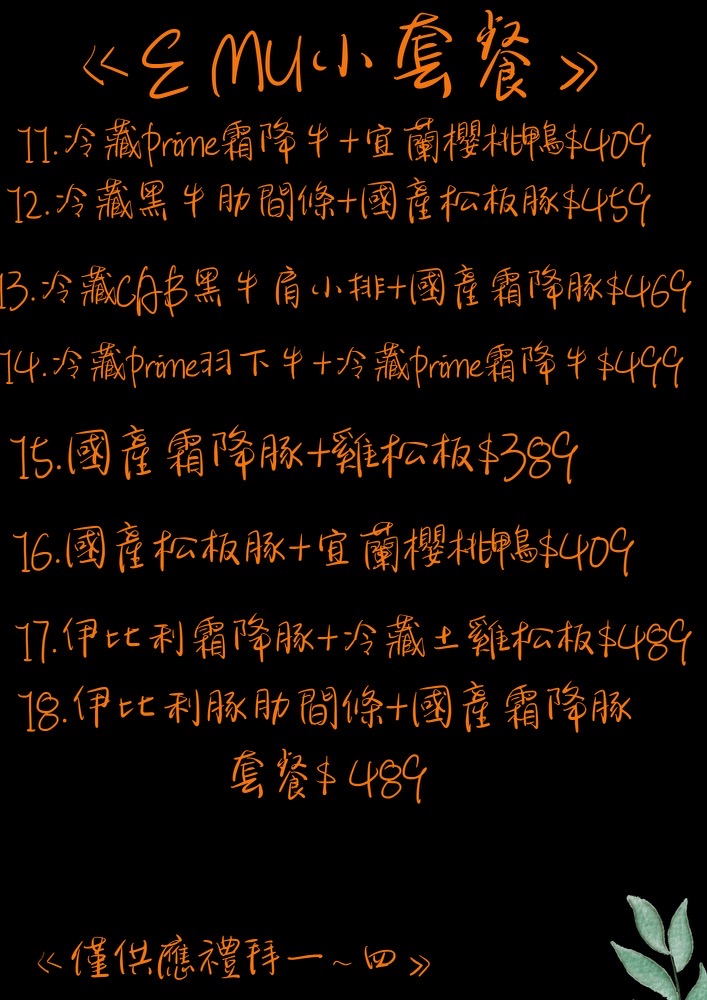 《ΣMU小套餐》
11.冷藏prime霜降牛+宜蘭櫻桃鴨$409
12.冷藏黑牛肋間條+國產松板豚$459
13.冷藏CAB黑牛肩小排+國產霜降豚$469
14.冷藏prime羽下牛+冷藏prime霜降牛$499
15.國產霜降豚+雞松板$389
16.國產松板豚+宜蘭櫻桃鴨$409
17.伊比利霜降豚+冷藏土雞松板$489
18.伊比利豚肋間條+國產霜降豚
套餐$489
《僅供應禮拜一~四》